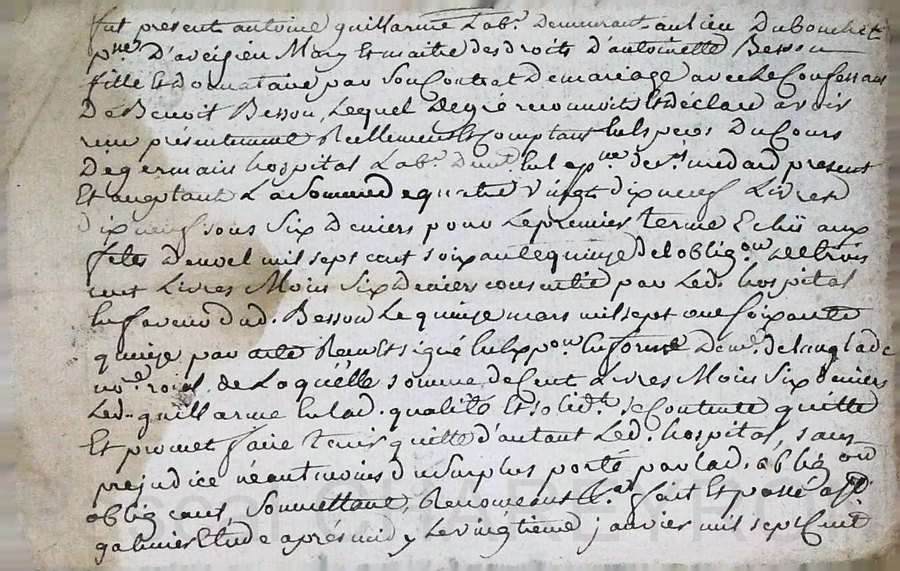 fut présent antoine guillarme Lab.r Demeurant au lieu Du Bouchet
p.sse D'aveizieu Mary Et maitre des droits D'antoinette Besson
fille Et Donnataire par Son Contrat De mariage avec Le Confessant
De Benoit Besson, Lequel De gré reconnoit Et Déclare avoir
reçu présentement Réellement Et Comptant En Espèces Du Cours
De germain hospital Lab.r Dem.t En la p.sse De s.t medard présent
Et aceptant La Somme De quatre Vingt dix neuf Livres
Dix neuf sous Six Deniers pour Le premier terme Echü aux
fêtes De noel mil sept cent soixante quinze De l'oblig.on De trois
cent Livres Moins Six Deniers consentie par Led. hospital
En faveur dud. Besson Le quinze mars mil sept cent soixante
quinze par acte Reçu Et signé En Exp.on En forme De m.e De Langlade
no.re roial, De Laquelle somme De Cent Livres Moins Six Deniers
Led. guillarme En lad. qualité Et solid.t se Contente quitte
Et promet faire tenir quitte d'autant Led. hospital, sans
prejudice néantmoins du Surplus porté par lad. oblig.on
obligeant, Soumettant, Renonceant &.a fait Et passé a s.t
galmier Etude après midy Le vingtieme janvier mil sept Cent